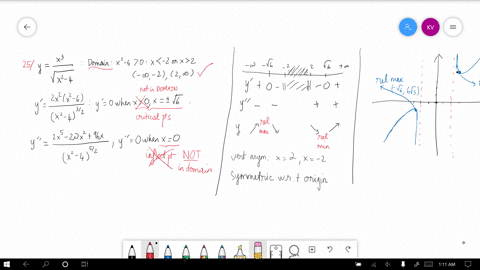 25/ y = x³/√(x²-4) ; Domain: x²-4>0 : x<-2 or x>2
(-∞,-2), (2,∞) ✓
not in domain
y' = 2x²(x²-6)/(x²-4)^(3/2) : y'=0 when x=0, x=±√6
critical pts
y'' = 2x⁵-20x³+96x/(x²-4)^(5/2) , y''=0 when x=0
inflect pt NOT in domain
-∞ -√6 -2 2 √6 +∞
y' + 0 - || || - 0 +
y'' - - + +
y rel max rel min
vert asym, x=2, x=-2
Symmetric wrt origin
rel max
KV
1:11 AM